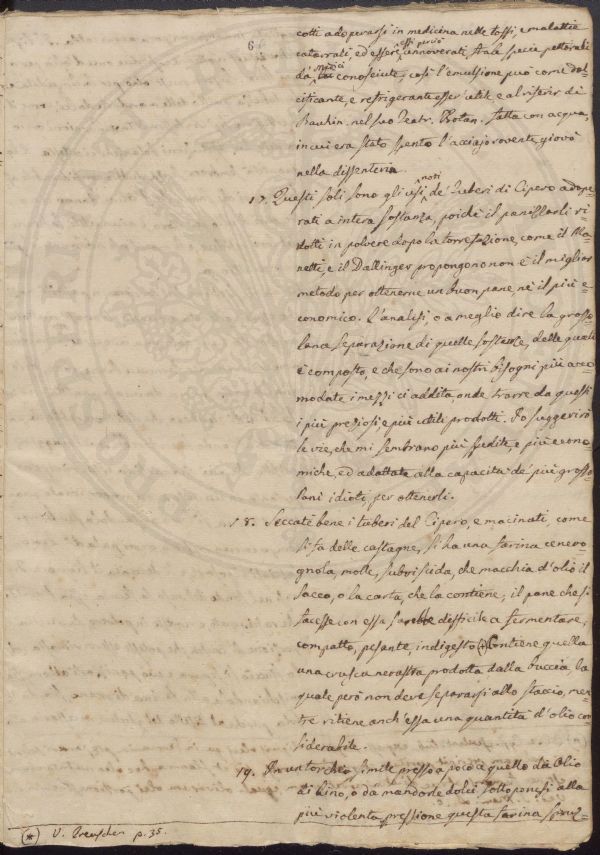 6
cotti adoperarsi in medicina nelle tossi, e malattie
catarrali, ed essere essi perciò annoverati fra le specie pettorali
da' Medici conosciute, così l'emulsione può come dol-
cificante, e refrigerante esser utile e al riferir di
Bauhin nel suo Teatr. Botan. fatta con acqua,
in cui era stato spento l'acciajo rovente, giovò
nella dissenteria.
17. Questi soli sono gli usi noti de' Tuberi di Cipero adope-
rati a intera sostanza, poichè il panizzarli ri-
dotti in polvere dopo la torrefazione, come il Ma-
netti, e il Dallinger propongono non è il miglior
metodo per ottenerne un buon pane, nè il più e-
conomico. L'analisi, o a meglio dire la grosso-
lana separazione di quelle sostanze, delle quali
è composto, e che sono ai nostri bisogni più acco-
modate i mezzi ci addita, onde trarre da questi
i più preziosi, e più utili prodotti. Io suggerirò
le vie, che mi sembrano più spedite, e più econo-
miche, ed adattate alla capacità de' più grosso-
lani idioti, per ottenerli.
18. Seccati bene i tuberi del Cipero, e macinati, come
si fa delle castagne, si ha una farina cenero-
gnola, molle, subviscida, che macchia d'olio il
sacco, o la carta, che la contiene; il pane che si
facesse con essa sarebbe difficile a fermentare,
compatto, pesante, indigesto (*) Contiene quella
una crusca nerastra prodotta dalla buccia la
quale però non deve separarsi allo staccio, men-
tre ritiene anch'essa una quantità d'olio con-
siderabile.
19. In un torchio simile presso a poco a quello da Olio
di Lino, o da mandorle dolci sottoponesi alla
più violenta pressione questa farina spruz-
(*) V. Preuschen p. 35.